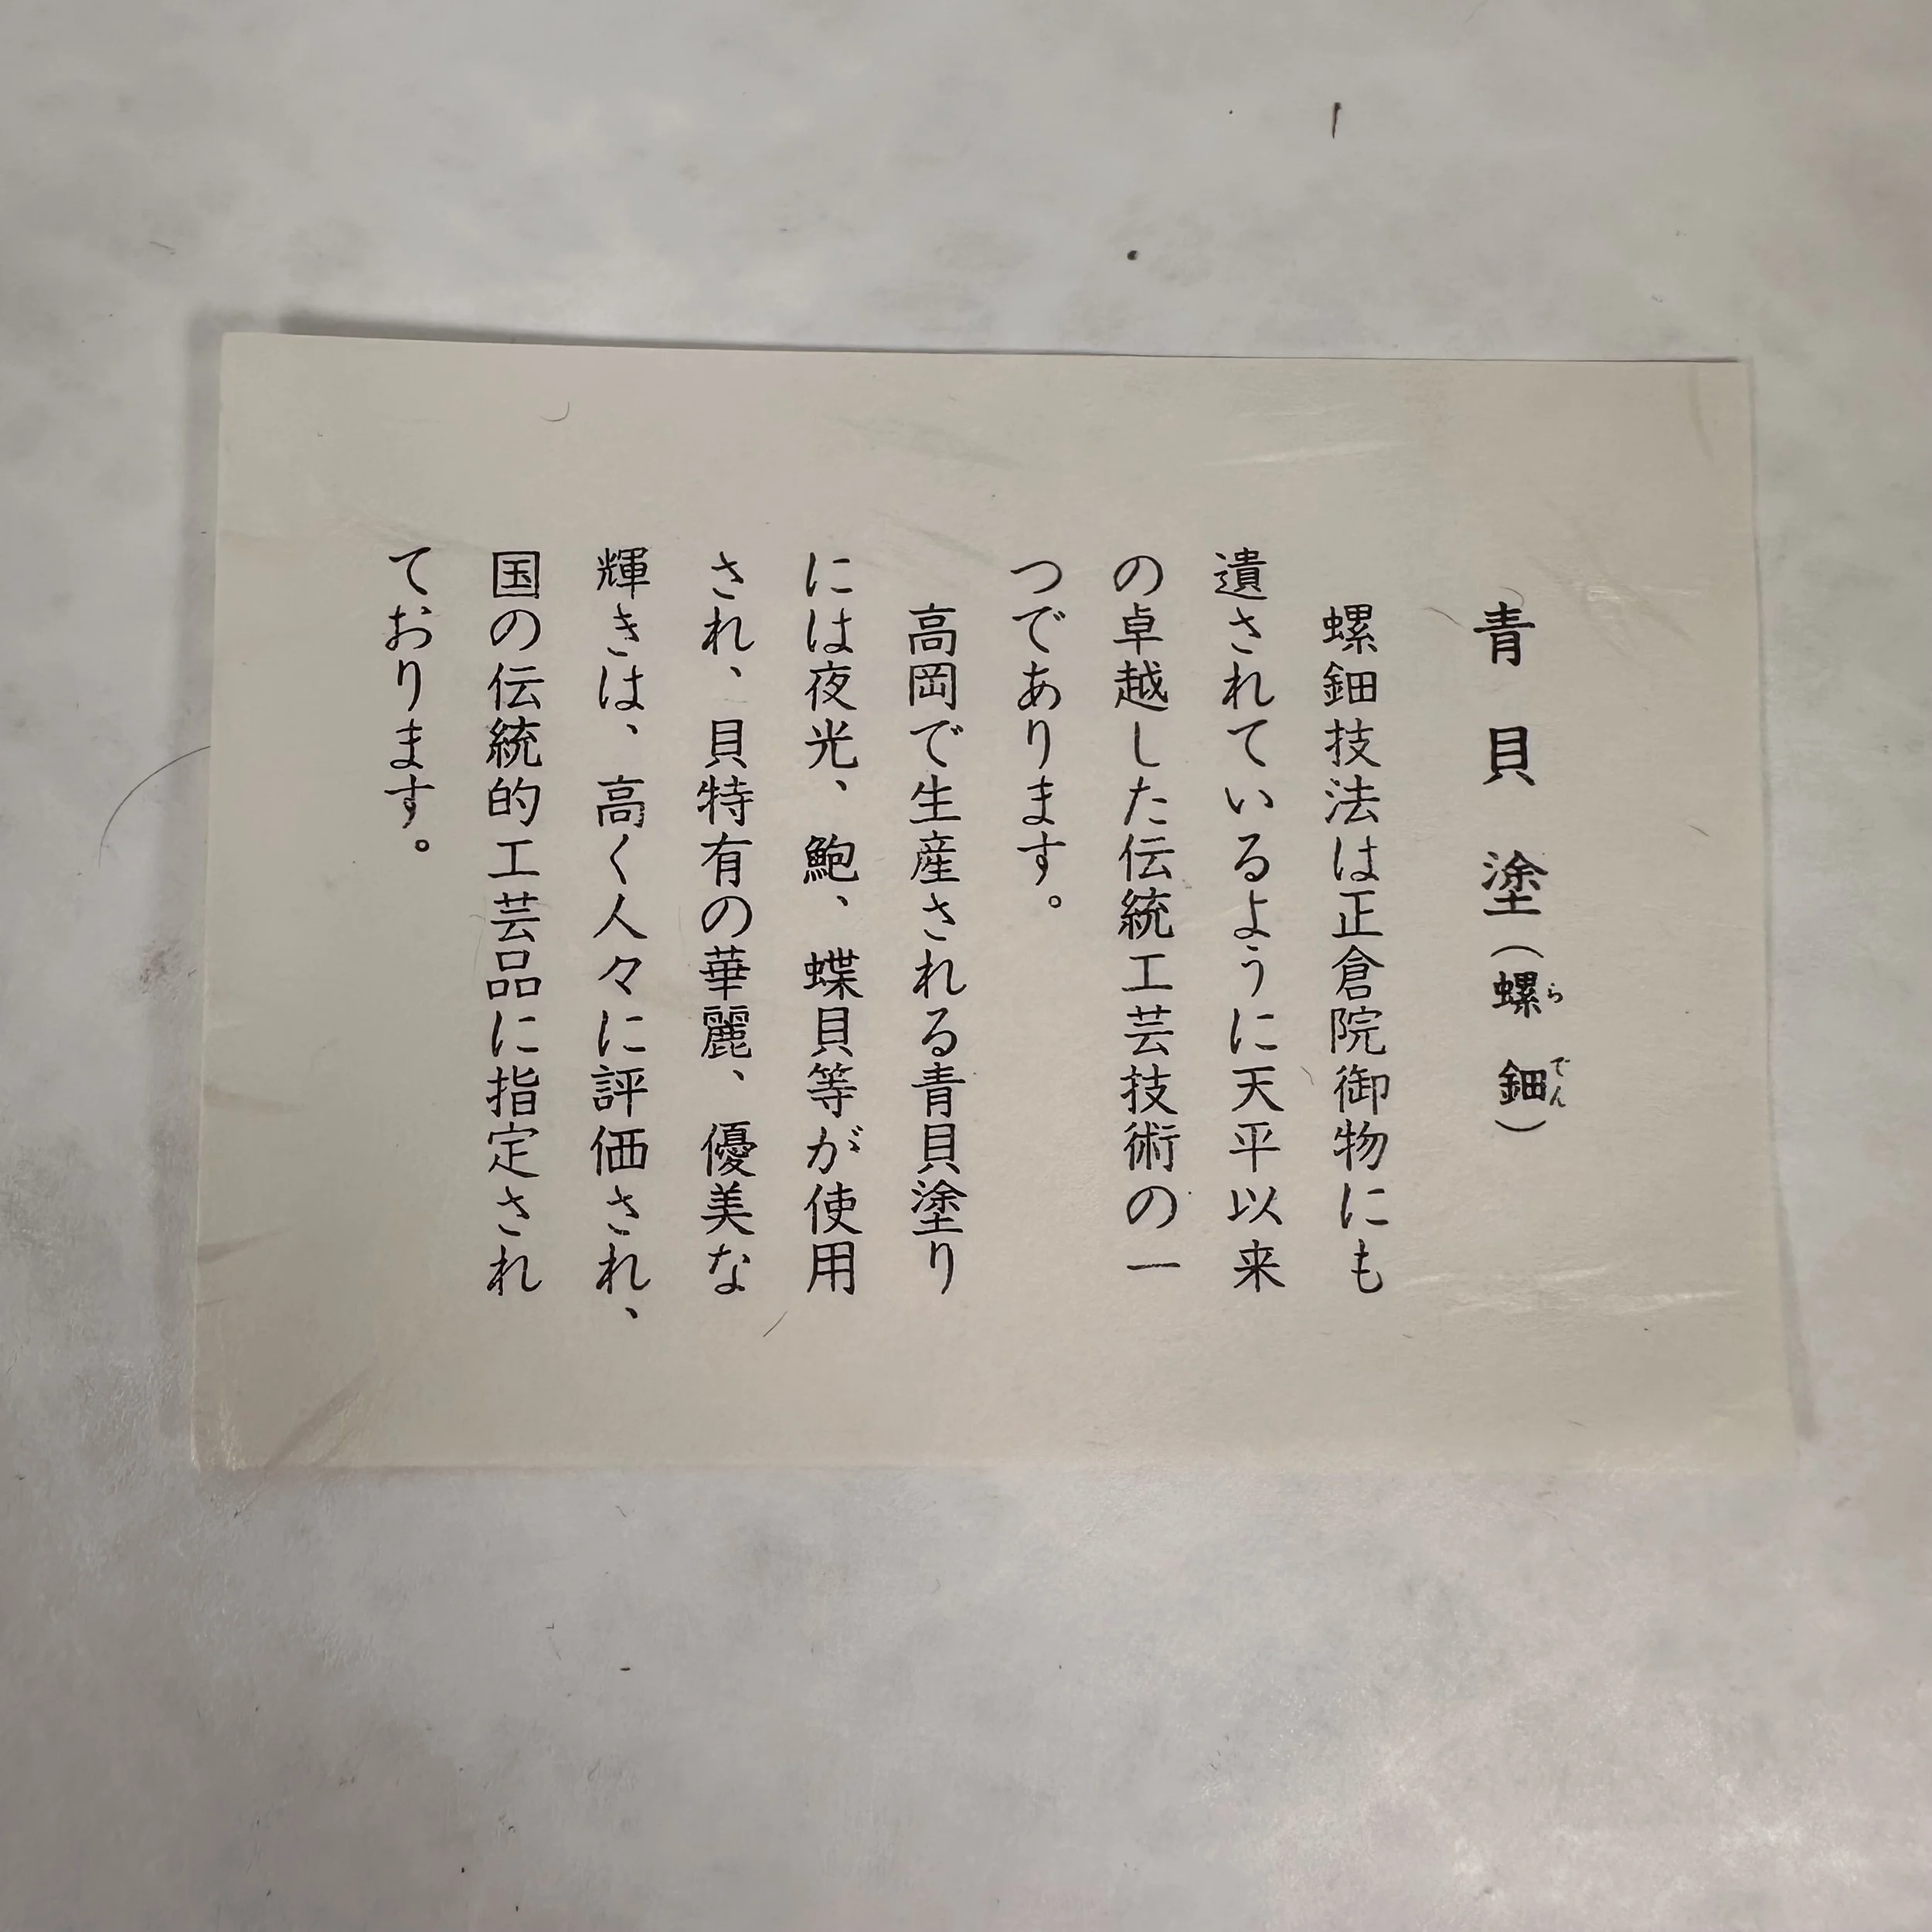 青貝塗(螺鈿)
らでん
螺鈿技法は正倉院御物にも
遺されているように天平以来
の卓越した伝統工芸技術の一
つであります。
高岡で生産される青貝塗り
には夜光、鮑、蝶貝等が使用
され、貝特有の華麗、優美な
輝きは、高く人々に評価され、
国の伝統的工芸品に指定され
ております。